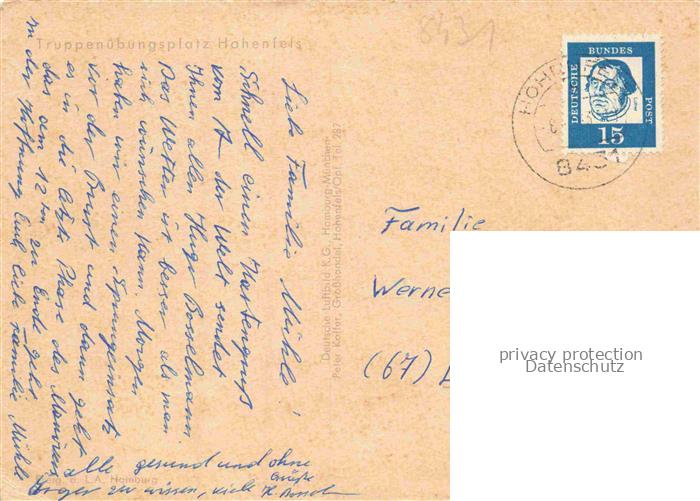 8431
Truppenübungsplatz Hohenfels
Liebe Familie Mühle!
Schnell einen Kartengruß
vom A. der Welt sendet
Ihnen allen Hugo Bosselmann
Das Wetter ist besser als man
sich wünschen kann. Morgen
haben wir einen Sprungeinsatz
vor der Brust und dann geht
es in die letzte Phase des Manövers
das am 12ten zu Ende geht.
In der Hoffnung Euch liebe Familie Mühle
alle gesund und ohne
Ärger zu wissen, viele Grüße
H. Bossel
Deutsche Luftbild K.G., Hamburg
Peter Koller, Großhandel, Hohenfels/Opf.
L.A. Hamburg
DEUTSCHE BUNDES POST
15
HOHE
8431
Familie
Werne
(67)
privacy protection
Datenschutz